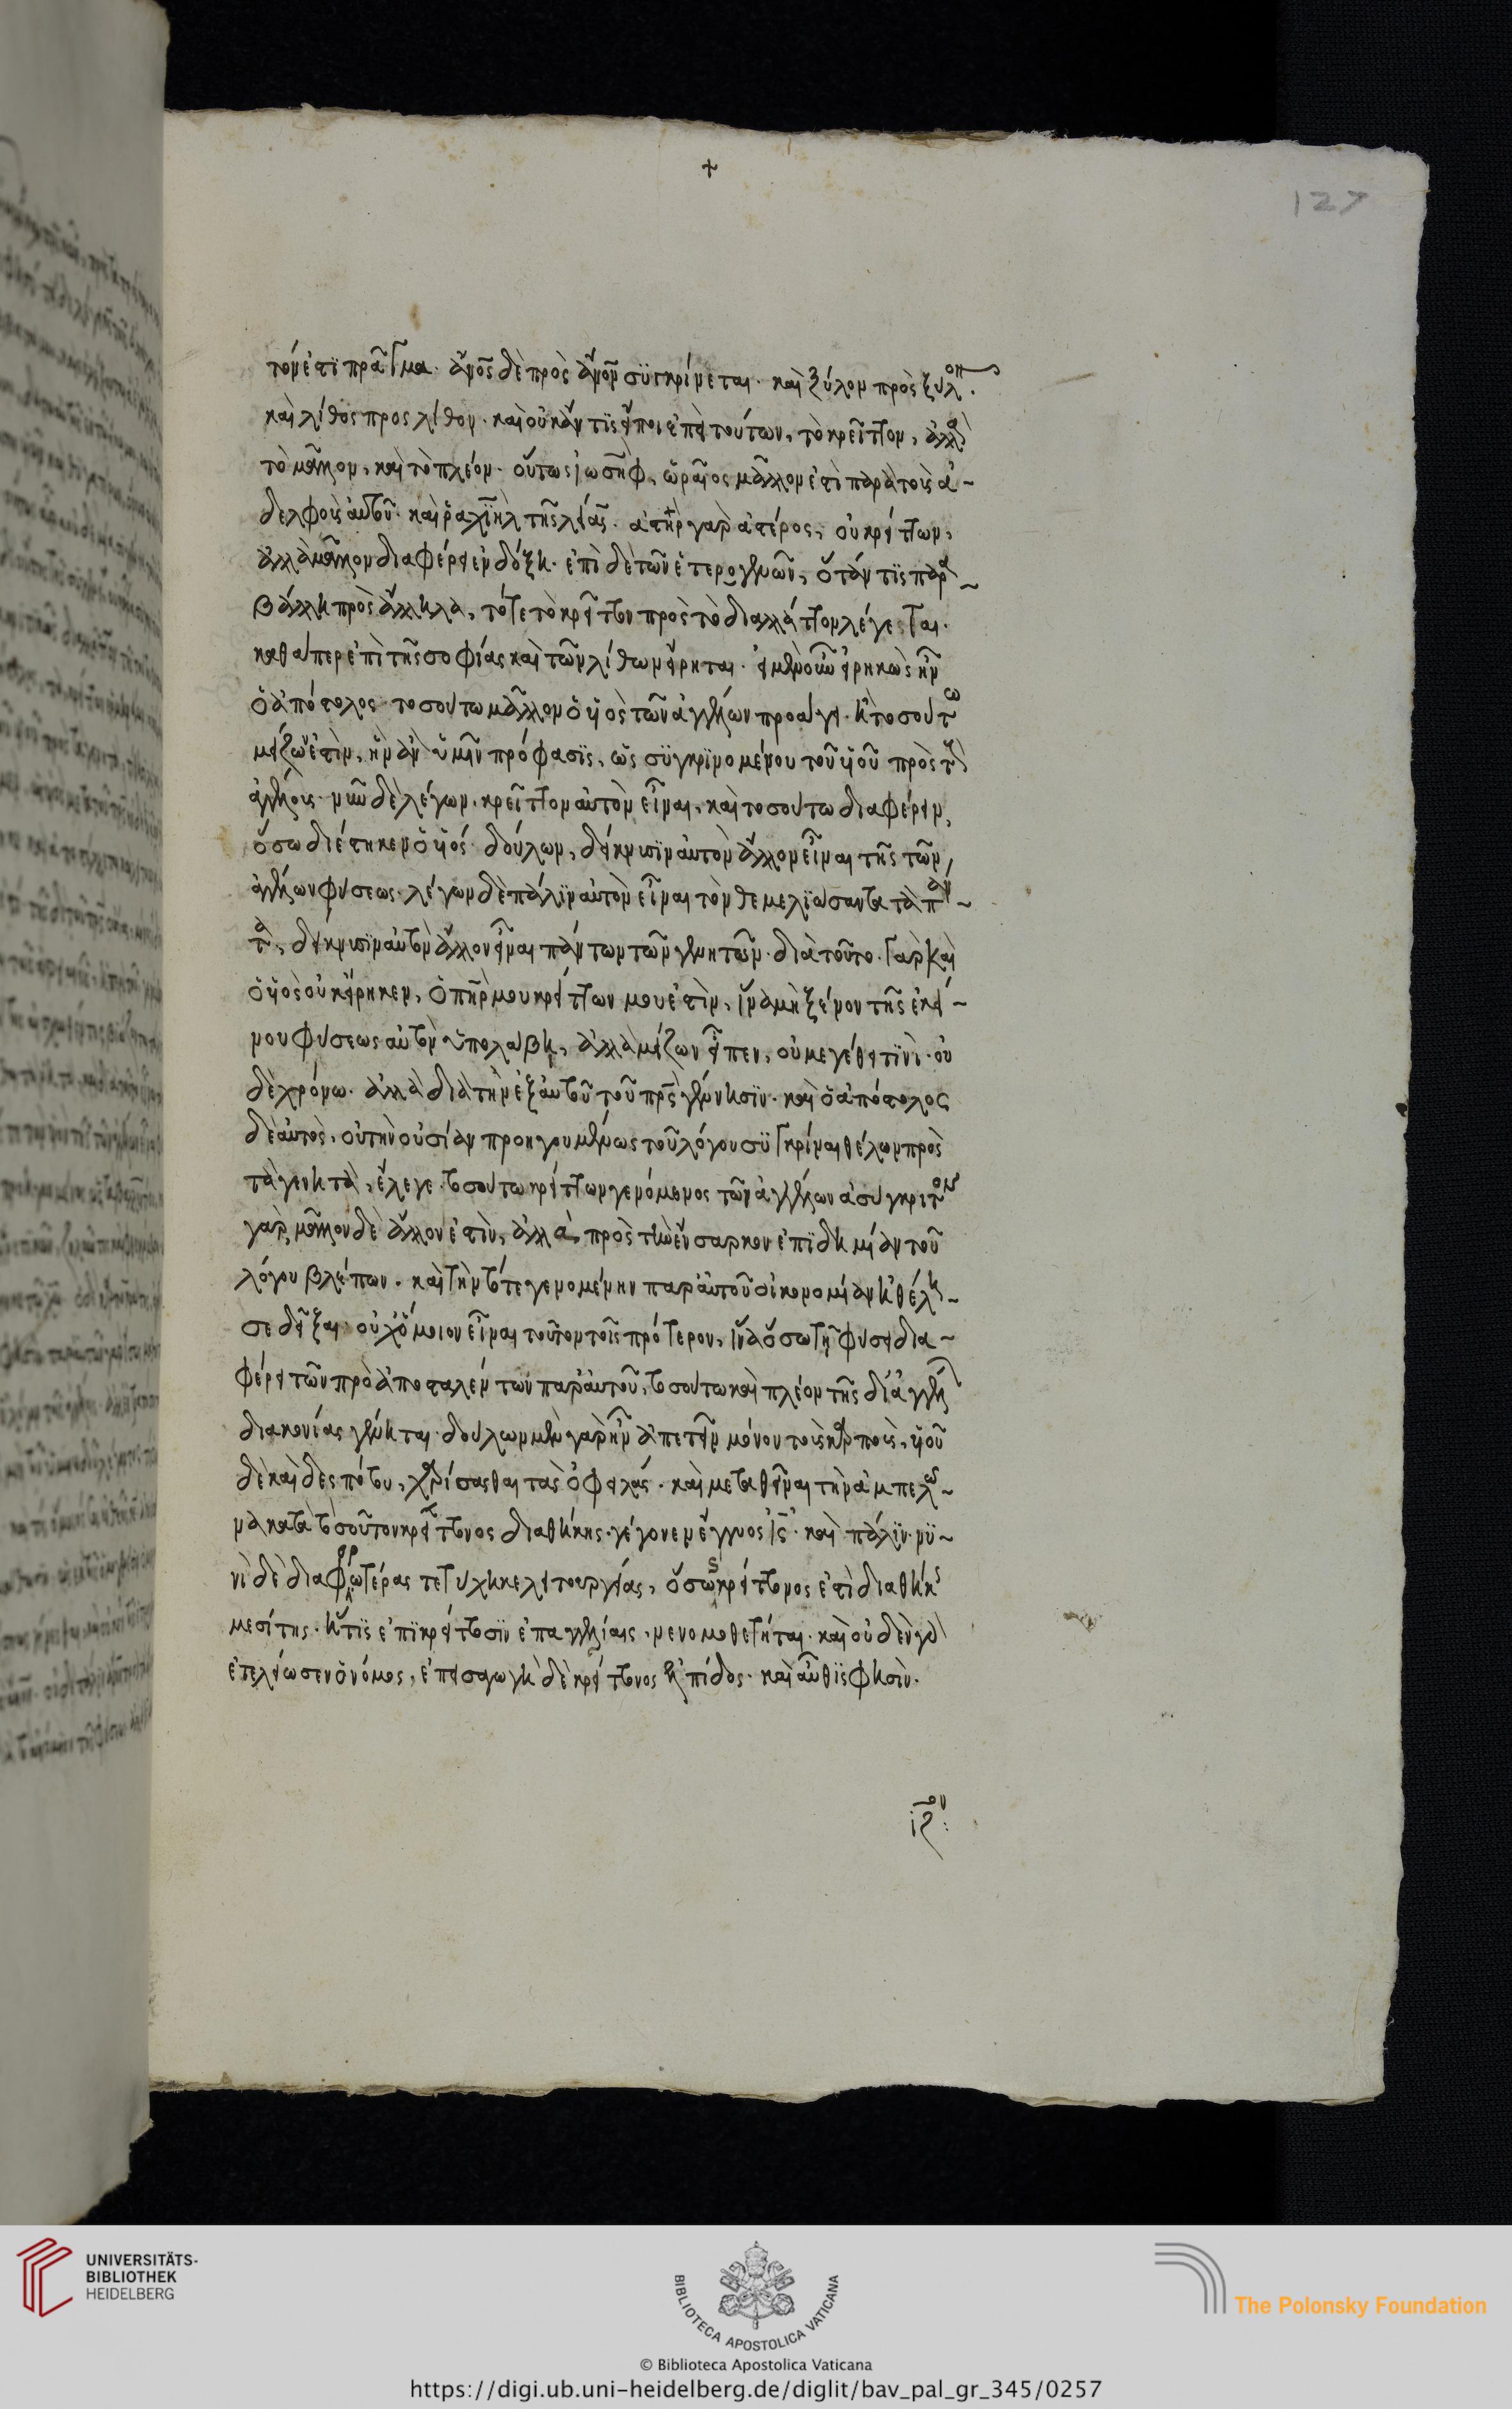 +
127
τόν ἐστι πρᾶγμα. ἄν̅ο̅ς δὲ πρὸς ἄν̅ο̅ν συγκρίνεται. καὶ ξύλον πρὸς ξύλον.
καὶ λίθος προς λίθον. καὶ οὐκ ἄν τις εἴποι ἐπὶ τούτων, τὸ κρεῖττον, ἀλλὰ
τὸ μᾶλλον, καὶ τὸ πλέον. οὕτως ἰωσὴφ, ὡραῖος μᾶλλον ἐστὶ παρὰ τοῖς ἀ-
δελφοῖς αὐτοῦ. καὶ ῥαχιὴλ τῆς λείας. ἀστὴρ γαρ ἀστέρος, οὐ κρείττων,
ἀλλὰ μᾶλλον διαφέρει ἐν δόξη. ἐπὶ δὲ τῶν ἑτερογενῶν, ὅταν τις παρα-
βάλλη πρὸς ἄλληλα, τότε τὸ κρεῖττον πρὸς τὸ διαλλάττον λέγεται.
καθάπερ ἐπὶ τῆς σοφίας καὶ τῶν λίθων εἴρηται. εἰ μὲν οὖν εἰρηκὼς ἦν
ὁ ἀπόστολος τοσούτω μᾶλλον ὁ υἱὸς τῶν ἀγγέλων προάγει. ἢ τοσούτω
μείζω ἐστὶν, ἦν ἂν ὑμῖν πρόφασις, ὡς συγκρινομένου τοῦ υἱοῦ πρὸς τοὺς
ἀγγέλους. νῦν δὲ λέγων, κρεῖττον αὐτὸν εἶναι, καὶ τοσούτω διαφέρειν,
ὅσω διέστηκεν ὁ υἱός δούλων, δείκνυσιν αὐτὸν ἄλλον εἶναι τῆς τῶν
ἀγγέλων φύσεως. λέγων δὲ πάλιν αὐτὸν εἶναι τὸν θεμελιώσαντα τὰ πάν-
τα, δείκνυσιν αὐτὸν ἄλλον εἶναι πάντων τῶν γενητῶν. διὰ τοῦτο γαρ καὶ
ὁ υἱὸς οὐκ εἴρηκεν, ὁ π̅η̅ρ μου κρείττων μου ἐστὶν, ἵνα μὴ ξένον τῆς ἐκεί-
νου φύσεως αὐτὸν ὑπολάβη, ἀλλὰ μείζων εἶπεν, οὐ μεγέθει τινὶ. οὐ
δὲ χρόνω. ἀλλὰ διὰ τὴν ἐξ αὐτοῦ τοῦ π̅ρ̅ς γέννησιν. καὶ ὁ ἀπόστολος
δὲ αὐτὸς, οὐ τὴν οὐσίαν προηγουμένως τοῦ λόγου συγκρίναι θέλων πρὸς
τὰ γενητὰ, ἔλεγε. τοσούτω κρείττων γενόμενος τῶν ἀγγέλων ἀσύγκριτον
γαρ, μᾶλλον δὲ ἄλλον ἐστὶν, ἀλλὰ πρὸς τὴν ἔνσαρκον ἐπιδημίαν τοῦ
λόγου βλέπων. καὶ τὴν τότε γενομένην παρ' αὐτοῦ οἰκονομίαν ἠθέλη-
σε δεῖξαι οὐχ ὅμοιον εἶναι τοῦτον τοῖς πρότερον, ἵνα ὅσω τῆ φύσει δια-
φέρει τῶν προαποσταλέντων παρ' αὐτοῦ, τοσούτω καὶ πλέον τῆς δι' ἀγγέλων
διακονίας γένηται. δούλων μὲν γαρ ἦν ἀπαιτεῖν μόνον τοὺς καρποὺς, υἱοῦ
δὲ καὶ δεσπότου, χαρίσασθαι τὰς ὀφειλάς. καὶ μεταθεῖναι τὴν ἀμπελω-
να κατὰ τοσοῦτον κρείττονος διαθήκης. γέγονεν ἔγγυος ι̅ς̅. καὶ πάλιν νυ-
νὶ δὲ διαφορωτέρας τετύχηκε λειτουργίας, ὅσω κρείττονος ἐστὶ διαθήκης
μεσίτης. ἥτις ἐπὶ κρείττοσιν ἐπαγγελίαις, νενομοθετῆται. καὶ οὐδὲν γαρ
ἐτελείωσεν ὁ νόμος, ἐπεισαγωγὴ δὲ κρείττονος ἐλπίδος. καὶ αὖθις φησὶν.